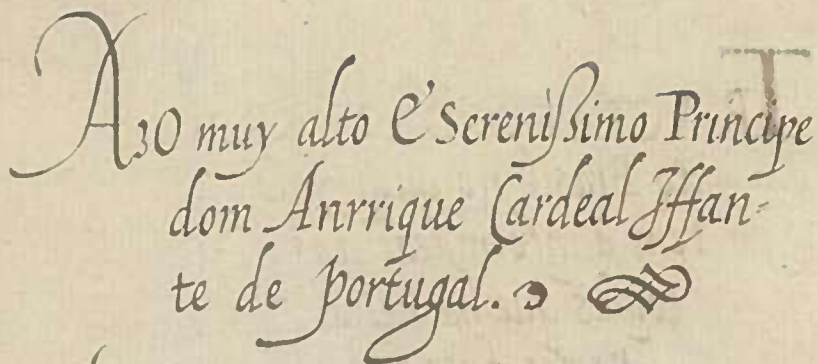 Ao muy alto & Serenißimo Principe
dom Anrrique Cardeal Iffan-
te de portugal.